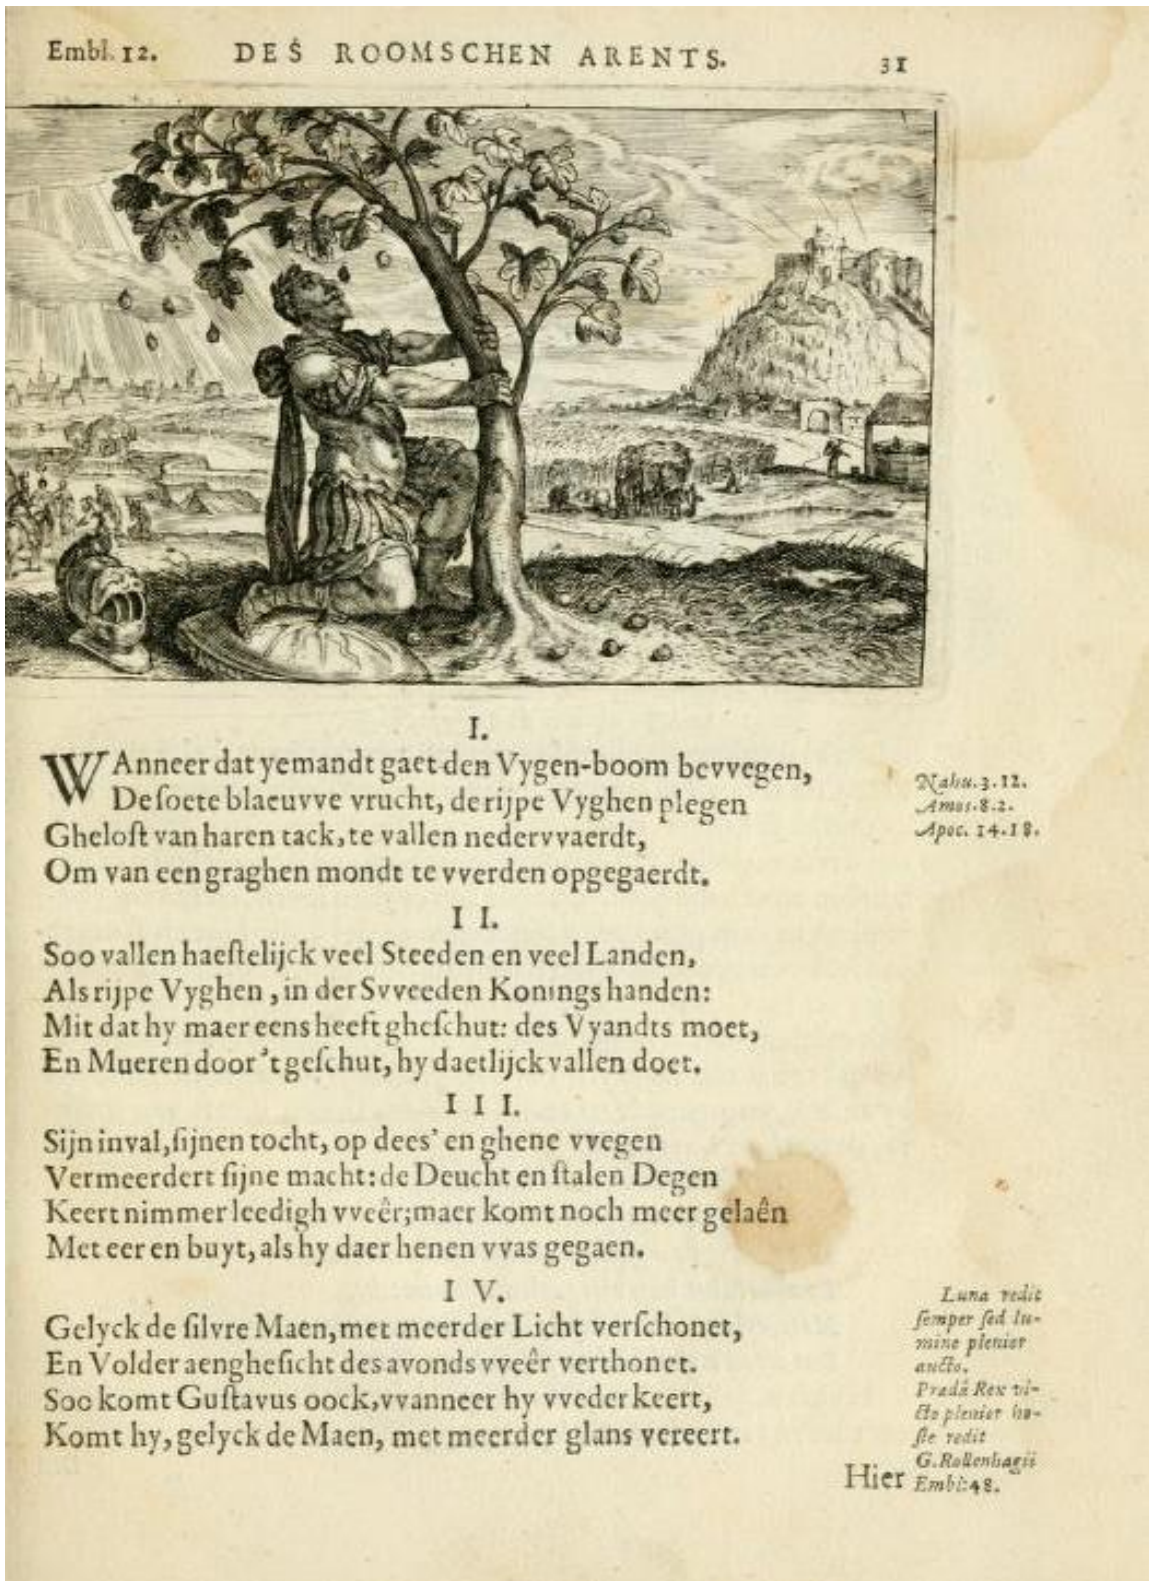 Embl. 12. DES ROOMSCHEN ARENTS. 31
I.
WAnneer dat yemandt gaet den Vygen-boom bevvegen,
De soete blaeuvve vrucht, de rijpe Vyghen plegen
Ghelost van haren tack, te vallen nedervvaerdt,
Om van een graghen mondt te vverden opgegaerdt.
Nahu. 3. 12.
Amos. 8. 2.
Apoc. 14. 18.
I I.
Soo vallen haestelijck veel Steeden en veel Landen,
Als rijpe Vyghen, in der Svveeden Konings handen:
Mit dat hy maer eens heeft gheschut: des Vyandts moet,
En Mueren door 't geschut, hy daetlijck vallen doet.
I I I.
Sijn inval, sijnen tocht, op dees' en ghene vvegen
Vermeerdert sijne macht: de Deucht en stalen Degen
Keert nimmer leedigh vveêr; maer komt noch meer gelaên
Met eer en buyt, als hy daer henen vvas gegaen.
I V.
Gelyck de silvre Maen, met meerder Licht verschonet,
En Volder aenghesicht des avonds vveêr verthonet.
Soo komt Gustavus oock, vvanneer hy vveder keert,
Komt hy, gelyck de Maen, met meerder glans vereert.
Luna redit
semper sed lu-
mine plenior
aucto.
Prædâ Rex vi-
cto plenior ho-
ste redit
G. Rollenhagii
Embl: 48.
Hier